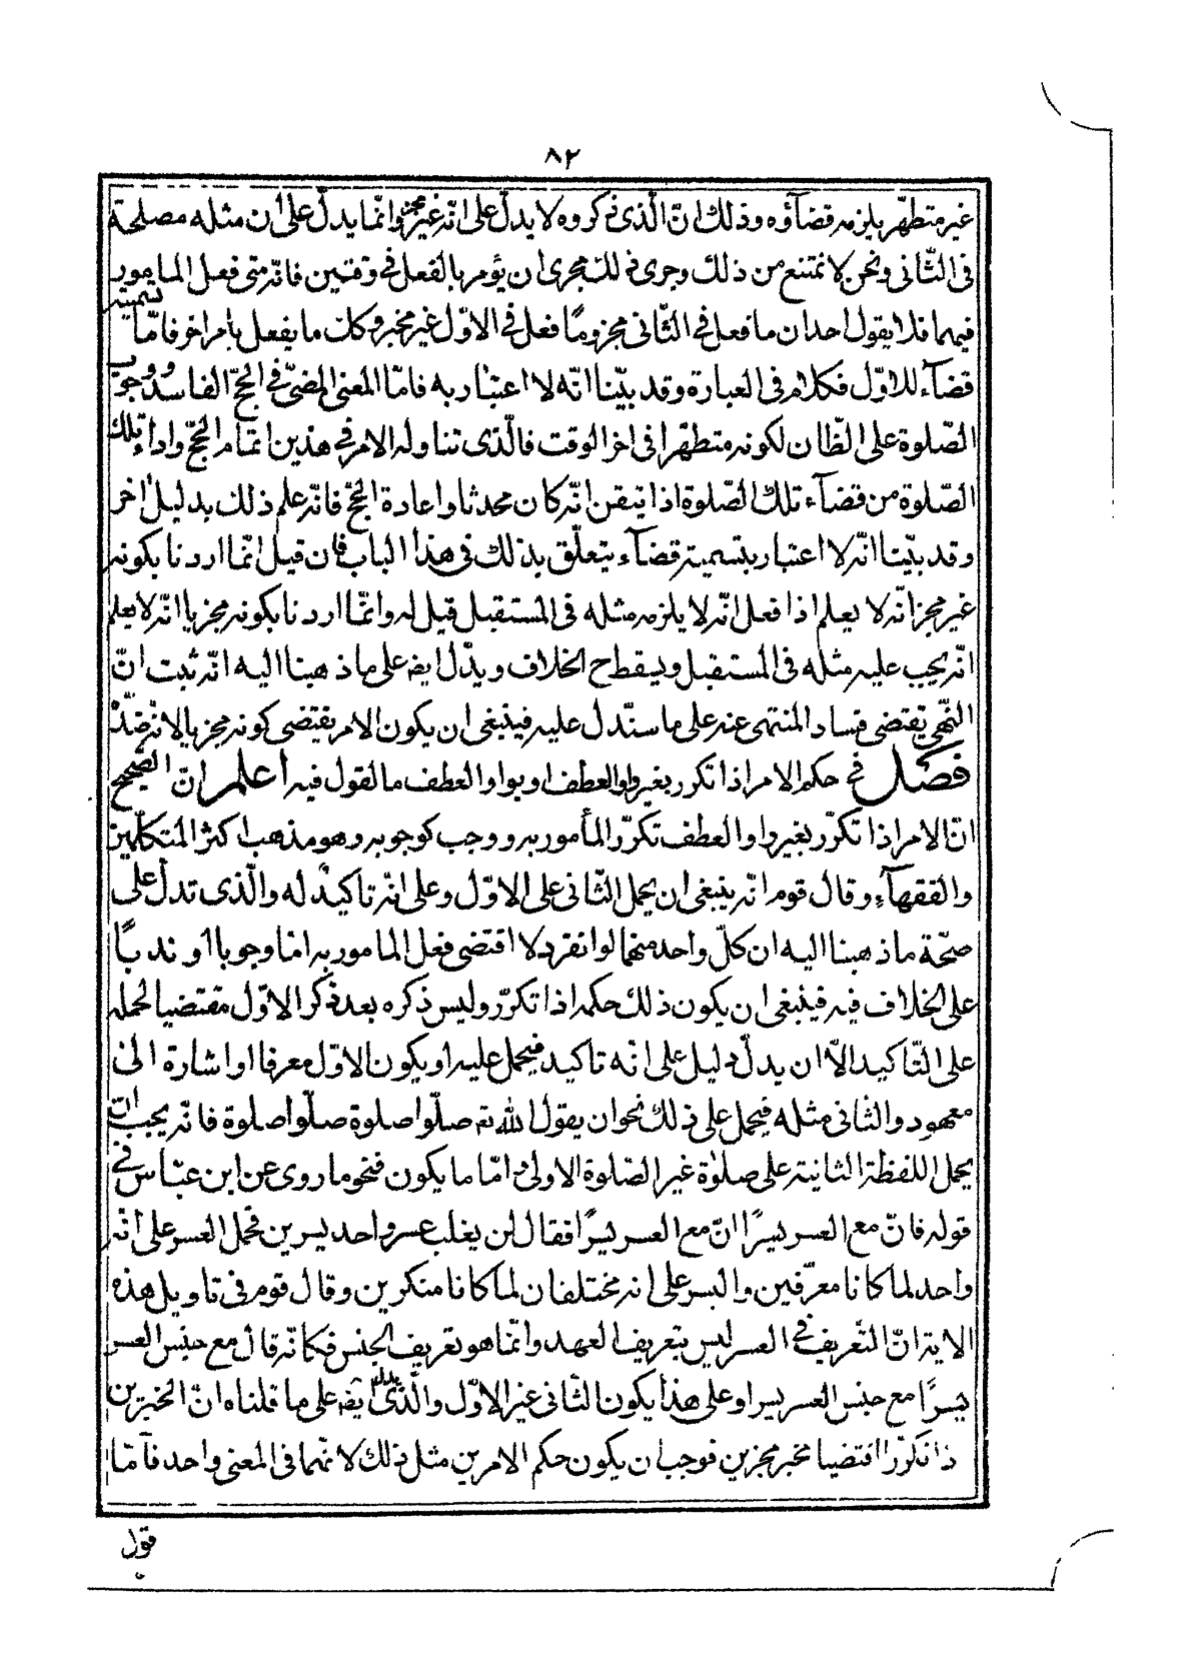 ٨٢
غير متطهّر يلزمه قضآؤه وذلك انّ الّذى ذكروه لا يدلّ على انّه غير مجز وانّما يدلّ على أن مثله مصلحة
فى الثّانى ونحن لا نمتنع من ذلك وجرى ذلك مجرى ان يؤمر بالفعل فى وقتين فانّه متى فعل المامور
فيهما فلا يقول احد ان ما فعل فى الثّانى مجز وما فعل فى الاوّل غير مجز وكان ما يفعل بامر اخر فامّا تسميته
قضآء للاوّل فكلام فى العبارة وقد بيّنا انّه لا اعتبار به فامّا المعنى المضىّ فى الحجّ الفاسد ووجوب
الصّلوة على الظّان لكونه متطهّرا فى اخر الوقت فالّذى تناوله الامر فى هذين اتمام الحجّ واداء تلك
الصّلوة من قضآء تلك الصّلوة اذا تيقن انّه كان محدثا واعادة الحجّ فانّه علم ذلك بدليل اخر
وقد بيّنا انّه لا اعتبار بتسميته قضآء يتعلّق بذلك فى هذا الباب فان قيل انّما اردنا بكونه
غير مجز انّه لا يعلم اذا فعل انّه لا يلزمه مثله فى المستقبل قيل له وانّما اردنا بكونه مجزيا انّه لا يعلم
انّه يجب عليه مثله فى المستقبل ويسقط ح الخلاف ويدّل ايضا على ما ذهبنا اليه انّه ثبت انّ
النّهى يقتضى فساد المنتهى عنه على ما سندّل عليه فينبغى ان يكون الامر يقتضى كونه مجزيا لانّه ضدّه
فصل فى حكم الامر اذا تكرر بغير واو العطف او بواو العطف ما القول فيه اعلم انّ الصّحيح
انّ الامر اذا تكرّر بغير واو العطف تكرّر المأمور به ووجب كوجوبه وهو مذهب اكثر المتكلّمين
والفقهآء وقال قوم انّه ينبغى ان يحمل الثّانى على الاوّل وعلى انّه تاكيد له والّذى تدلّ على
صحّة ما ذهبنا اليه ان كلّ واحد منهما لو انفرد لا اقتضى فعل المامور به امّا وجوبا او ندبًا
على الخلاف فيه فينبغى ان يكون ذلك حكمه اذا تكرّر وليس ذكره بعد ذكر الاوّل مقتضيا لحمله
على التّاكيد الّا ان يدلّ دليل على انّه تاكيد فيحمل عليه او يكون الاوّل معرفا او اشارة الى
معهود والثانى مثله فيحمل على ذلك نحو ان يقول الله تم صلّوا صلوة صلّوا صلوة فانّه يجب ان
يحمل اللفظة الثانية على صلوة غير الصّلوة الاولى امّا ما يكون فنحو ما روى عن ابن عبّاس فى
قوله فانّ مع العسر يسرًا انّ مع العسر يسرًا فقال لن يغلب عسر واحد يسرين فحمل العسر على انّه
واحد لما كانا معرّفين واليسر على انه مختلفان لما كانا منكرين وقال قوم فى تاويل هذه
الاية انّ التّعريف فى العسر ليس بتعريف العهد وانّما هو تعريف الجنس فكانّه قال مع جنس العسر
يسرًا مع جنس العسر يسرا وعلى هذا يكون الثانى غير الاوّل والّذى يدل يضا على ما قلناه انّ الخبرين
ذا تكرّرا اقتضيا مخبر مجزين فوجب ان يكون حكم الامرين مثل ذلك لانّهما فى المعنى واحد فآمّا
قول